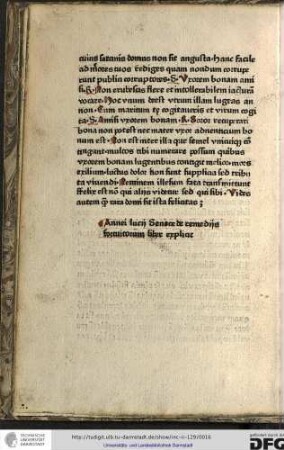 cuius satania domus non sie angusta. Hanc facile
ad mores tuos Erdiges quam nondum corrupe
runt publici corruptores. S. Uxorem bonam ami
si. R. Non erubescis flere et intollerabilem iacturā
vocare. Hoc vnum deest vtrum illam lugeas an
non. Cum maritum te cogitaueris et virum cogi
ta. S. Amisi vxorem bonam. R. Soror recuperari
bona non potest nec mater vxor aduenticium bo
num est. Non est inter illa que semel vnicuiq;
tingant. multos tibi numerare possum quibus
vxorem bonam lugentibus contigit melior. mors
exilium. luctus dolor non sunt supplicia sed tributa
viuendi. Neminem illesum fata transmittunt
felix est nō qui alijs videtur sed qui sibi. Vides
autem q̄ rara domi sit ista felicitas ;
Annei lucij Senece de remedijs
fortuitorum liber explicit
http://tudigit.ulb.tu-darmstadt.de/show/inc-ii-129/0016
Universitäts- und Landesbibliothek Darmstadt
TECHNISCHE
UNIVERSITÄT
DARMSTADT
gefördert durch die
DFG